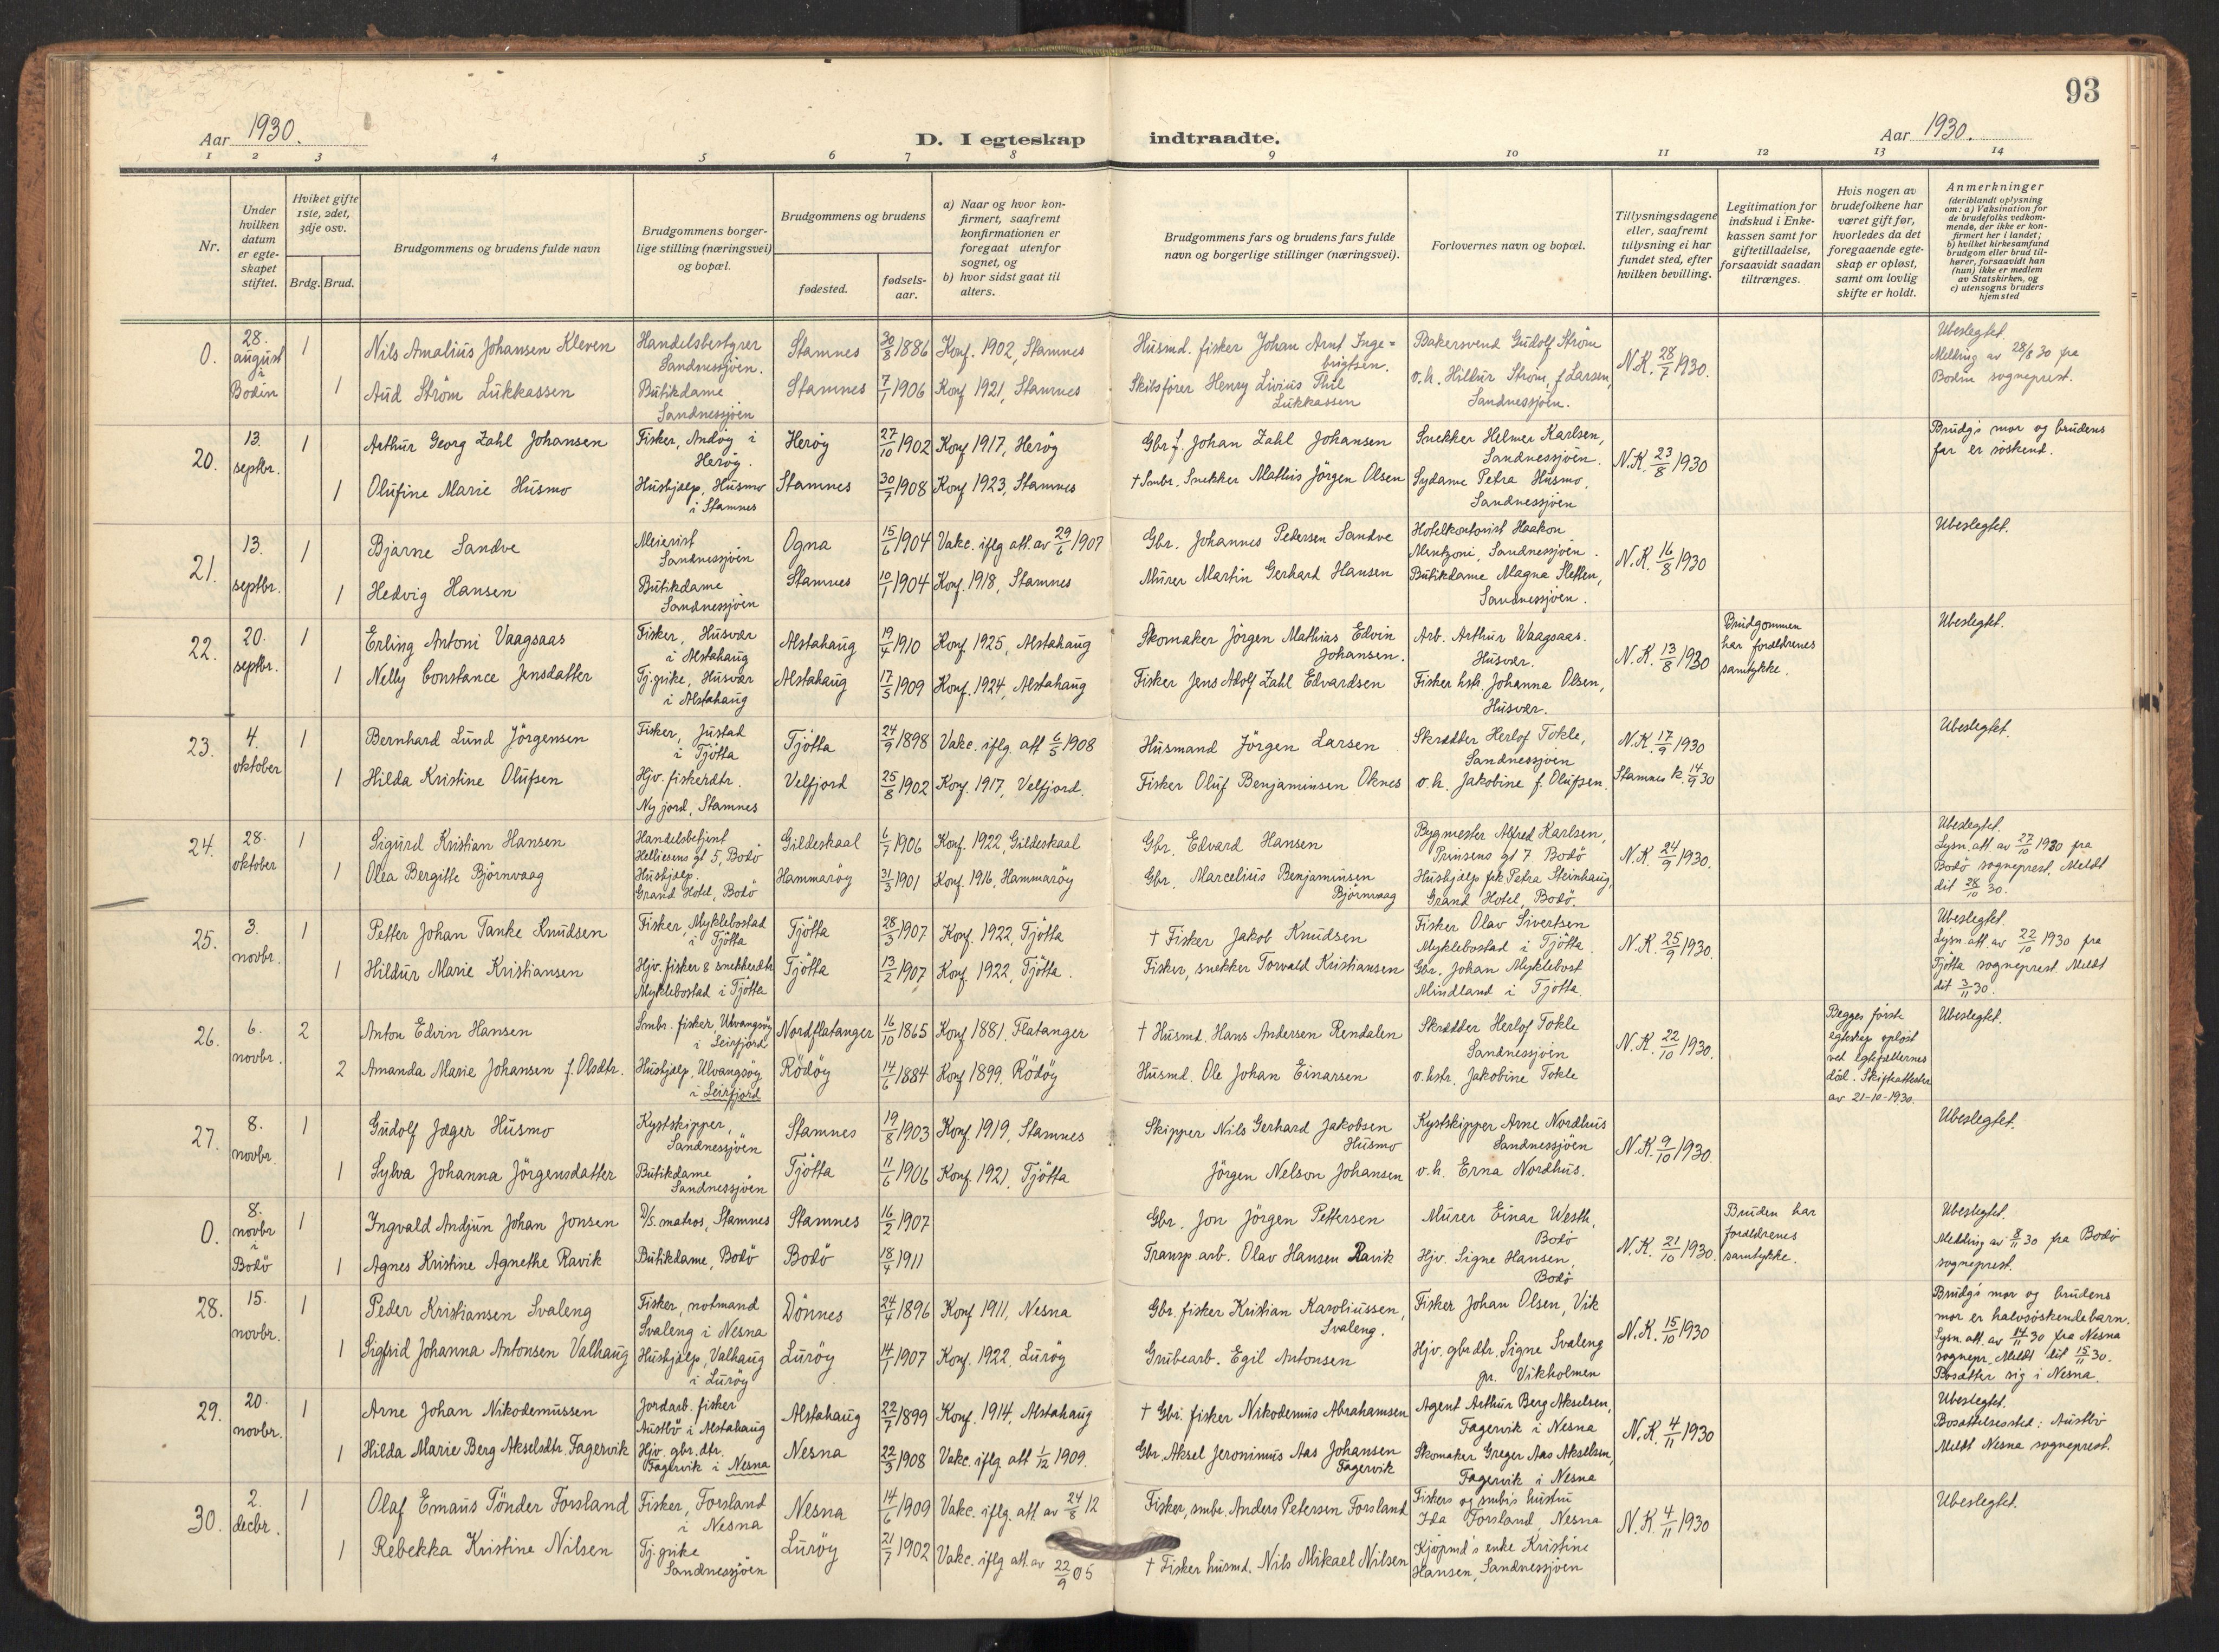 93
Aar 1930.
D. I egteskap indtraadte.
Aar 1930.
1 2 3 4 5 6 7 8 9 10 11 12 13 14
Nr.
Under
hvilken
datum
er egte-
skapet
stiftet.
Hviket gifte
1ste, 2det,
3dje osv.
Brdg. Brud.
Brudgommens og brudens fulde navn
Brudgommens borger-
lige stilling (næringsvei)
og bopæl.
Brudgommens og brudens
fødested.
fødsels-
aar.
a) Naar og hvor kon-
firmert, saafremt
konfirmationen er
foregaat utenfor
sognet, og
b) hvor sidst gaat til
alters.
Brudgommens fars og brudens fars fulde
navn og borgerlige stillinger (næringsvei).
Forlovernes navn og bopæl.
Tillysningsdagene
eller, saafremt
tillysning ei har
fundet sted, efter
hvilken bevilling.
Legitimation for
indskud i Enke-
kassen samt for
giftetilladelse,
forsaavidt saadan
tiltrænges.
Hvis nogen av
brudefolkene har
været gift før,
hvorledes da det
foregaaende egte-
skap er opløst,
samt om lovlig
skifte er holdt.
Anmerkninger
(deriblandt oplysning
om: a) Vaksination for
de brudefolks vedkom-
mende, der ikke er kon-
firmert her i landet;
b) hvilket kirkesamfund
brudgom eller brud til-
hører, forsaavidt han
(hun) ikke er medlem
av Statskirken, og
c) utensogns bruders
hjemsted
0.
28.
august
i
Bodin
1
Nils Amalius Johansen Kleven
Handelsbestyrer
Sandnessjöen.
Stamnes
30/8 1886
Konf. 1902, Stamnes
Husmd. fisker Johan Arnt Inge=
brigtsen.
Bakersvend Gudolf Ström
N.K. 28/7 1930.
Ubeslegtet.
Melding av 28/8 30 fra
Bodin sogneprest.
1
Aud Ström Lukkassen
Butikdame
Sandnessjöen
Stamnes
7/1 1906
Konf. 1921, Stamnes
Skibsfører Henry Livius Thil
Lukkassen
o.h. Hildur Ström, f. Larsen,
Sandnessjöen.
20.
13.
septbr.
1
Arthur Georg Zahl Johansen
Fisker, Andöy i
Heröy.
Heröy
27/10 1902
Konf. 1917, Heröy
Gbr. f. Johan Zahl Johansen
Snekker Helmer Karlsen,
Sandnessjöen.
N.K. 23/8 1930
Brudg's mor og brudens
far er söskend.
1
Olufine Marie Husmo
Hushjælp, Husmo
i Stamnes
Stamnes
30/7 1908
Konf 1923, Stamnes
† Smbr. Snekker Mathis Jörgen Olsen
Sydame Petra Husmo,
Sandnessjöen
21.
13.
septbr.
1
Bjarne Sandve
Meierist
Sandnessjöen
Ogna
15/6 1904
Vakc. iflg. att. av 29/6 1907
Gbr. Johannes Petersen Sandve
Hotelkontorist Haakon
Mentzoni, Sandnessjöen.
N.K. 16/8 1930
Ubeslegtet.
1
Hedvig Hansen
Butikdame
Sandnessjöen
Stamnes
10/1 1904
Konf. 1918, Stamnes
Murer Martin Gerhard Hansen
Butikdame Magna Sletten,
Sandnessjöen.
22.
20.
septbr.
1
Erling Antoni Vaagsaas
Fisker, Husvær
i Alstahaug
Alstahaug
19/4 1910
Konf. 1925, Alstahaug
Skomaker Jörgen Mathias Edvin
Johansen.
Arb. Arthur Waagsaas.
Husvær.
N.K. 13/8 1930
Brudgommen
har forældrenes
samtykke.
Ubeslegtet.
1
Nelly Constance Jensdatter
Tj.pike, Husvær
i Alstahaug
Alstahaug
17/5 1909
Konf. 1924, Alstahaug
Fisker Jens Adolf Zahl Edvardsen
Fisker hstr. Johanna Olsen,
Husvær.
23.
4.
oktober
1
Bernhard Lund Jörgensen
Fisker, Justad
i Tjötta
Tjötta
24/9 1898
Vakc. iflg. att 6/5 1908
Husmand Jörgen Larsen
Skrædder Herlof Tokle,
Sandnessjöen
N.K. 17/9 1930
Ubeslegtet.
1
Hilda Kristine Olufsen
Hjv. fiskerdtr.
Nyjord, Stamnes
Velfjord
25/8 1902
Konf. 1917, Velfjord.
Fisker Oluf Benjaminsen Oknes
o.h. Jakobine f. Olufsen.
Stamnes k. 14/9 30
24.
28.
oktober
1
Sigurd Kristian Hansen
Handelsbetjent
Helliesens gt 5, Bodö
Gildeskaal
6/7 1906
Konf. 1922, Gildeskaal
Gbr. Edvard Hansen
Bygmester Alfred Karlsen,
Prinsens gt 7. Bodö
N.K. 24/9 1930.
Ubeslegtet.
Lysn. att. av 27/10 1930 fra
Bodö sogneprest. Meldt
dit 28/10 30.
1
Olea Bergitte Björnvaag
Hushjælp.
Grand Hotel, Bodö
Hammaröy
31/3 1901
Konf. 1916, Hammaröy
Gbr. Marcelius Benjaminsen
Björnvaag
Hushjælp frk Petra Steinhaug,
Grand Hotel, Bodö.
25.
3.
novbr.
1
Petter Johan Tanke Knudsen
Fisker, Myklebostad
i Tjötta
Tjötta
28/3 1907
Konf. 1922, Tjötta
† Fisker Jakob Knudsen
Fisker Olav Sivertsen
Myklebostad i Tjötta.
N.K. 25/9 1930.
Ubeslegtet.
Lysn. att. av 22/10 1930 fra
Tjötta sogneprest. Meldt
dit 3/11 30.
1
Hildur Marie Kristiansen
Hjv. fisker & snekkerdtr
Myklebostad i Tjötta
Tjötta
13/2 1907
Konf. 1922, Tjötta.
Fisker, snekker Torvald Kristiansen
Gbr. Johan Myklebost
Mindland i Tjötta.
26.
6.
novbr.
2
Anton Edvin Hansen
Smbr. fisker, Ulvangsöy
i Leirfjord
Nordflatanger
16/10 1865
Konf 1881. Flatanger
† Husmd. Hans Andersen Rendalen
Skrædder Herlof Tokle
Sandnessjöen
N.K. 22/10 1930.
Begges første
egteskap opløst
ved egtefællernes
död. Skifteattester
av 21-10-1930.
Ubeslegtet.
2
Amanda Marie Johansen f. Olsdtr.
Hushjælp, Ulvangsöy
i Leirfjord
Rödöy
14/6 1884
Konf 1899. Rödöy
Husmd. Ole Johan Einarsen
o.hstr. Jakobine Tokle
27.
8.
novbr.
1
Gudolf Jæger Husmo
Kystskipper,
Sandnessjöen
Stamnes
19/8 1903
Konf. 1919, Stamnes
Skipper Nils Gerhard Jakobsen
Husmo
Kystskipper Arne Nordhus
Sandnessjöen
N.K. 9/10 1930.
Ubeslegtet.
1
Sylva Johanna Jörgensdatter
Butikdame
Sandnessjöen
Tjötta
11/6 1906
Konf. 1921. Tjötta
Jörgen Nelson Johansen
o.h. Erna Nordhus.
0.
8.
novbr
i
Bodö
1
Ingvald Andjun Johan Jonsen
D/S. matros, Stamnes
Stamnes
16/2 1907
Gbr. Jon Jörgen Pettersen
Murer Einar Westh,
Bodö
N.K. 21/10 1930
Bruden har
forældrenes
samtykke.
Ubeslegt.
Melding av 8/11 30 fra Bodö
sogneprest.
1
Agnes Kristine Agnethe Ravik
Butikdame, Bodö
Bodö
18/4 1911
Transp. arb. Olav Hansen Ravik
Hjv. Signe Hansen,
Bodö
28.
15.
novbr.
1
Peder Kristiansen Svaleng
Fisker, notmand
Svaleng i Nesna
Dönnes
24/4 1896
Konf 1911, Nesna
Gbr. fisker Kristian Karoliussen,
Svaleng.
Fisker Johan Olsen, Vik
N.K. 15/10 1930
Brudg's mor og brudens
mor er halvsöskendebarn.
Lysn. att. av 14/11 30 fra Nesna
sognepr. Meldt dit 15/11 30.
Bosætter sig i Nesna.
1
Sigfrid Johanna Antonsen Valhaug
Hushjælp, Valhaug
i Luröy
Luröy
14/1 1907
Konf. 1922. Luröy
Grubearb. Egil Antonsen
Hjv. gbrdtr. Signe Svaleng
pr. Vikholmen
29.
20.
novbr.
1
Arne Johan Nikodemussen
Jordarb. fisker
Austbö i Alstahaug
Alstahaug
22/7 1899
Konf. 1914, Alstahaug
† Gbr. fisker Nikodemus Abrahamsen
Agent Arthur Berg Akselsen,
Fagervik i Nesna
N.K. 4/11 1930
Ubeslegtet.
Bosættelsessted: Austbö
Meldt Nesna sogneprest.
1
Hilda Marie Berg Akselsdtr. Fagervik
Hjv. gbr. dtr.
Fagervik i Nesna
Nesna
22/3 1908
Vakc. iflg att 1/12 1909.
Gbr. Aksel Jeronimus Aas Johansen
Fagervik
Skomaker Greger Aas Akselsen,
Fagervik i Nesna
30.
2.
decbr.
1
Olaf Emaus Tönder Forsland
Fisker, Forsland
i Nesna
Nesna
14/6 1909
Vakc. iflg. att. av 24/8 12
Fisker, smbr. Anders Petersen Forsland
Fiskers og smbr's hustru
Ida Forsland, Nesna
N.K. 4/11 1930
Ubeslegtet.
1
Rebekka Kristine Nilsen
Tj. pike
Sandnessjöen
Luröy
21/7 1902
Vakc. iflg. att. av 22/9 05
† Fisker husmd. Nils Mikael Nilsen
Kjöpmd's enke Kristine
Hansen, Sandnessjöen